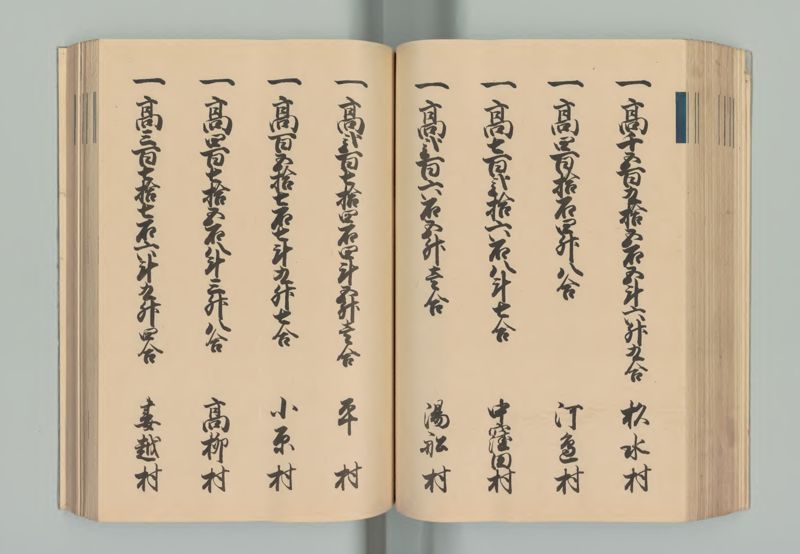 一 高千五百五拾五石五斗六升九合 杉水村
一 高四百拾石四升八合 河邉村
一 高七百弐拾六石八斗七合 中窪田村
一 高弐百六石五升壱合 湯舩村
一 高弐百七拾四石四斗五升壱合 平村
一 高百五拾七石七斗九升七合 小原村
一 高四百七拾五石八斗三升八合 高柳村
一 高三百七拾七石六斗九升四合 妻越村